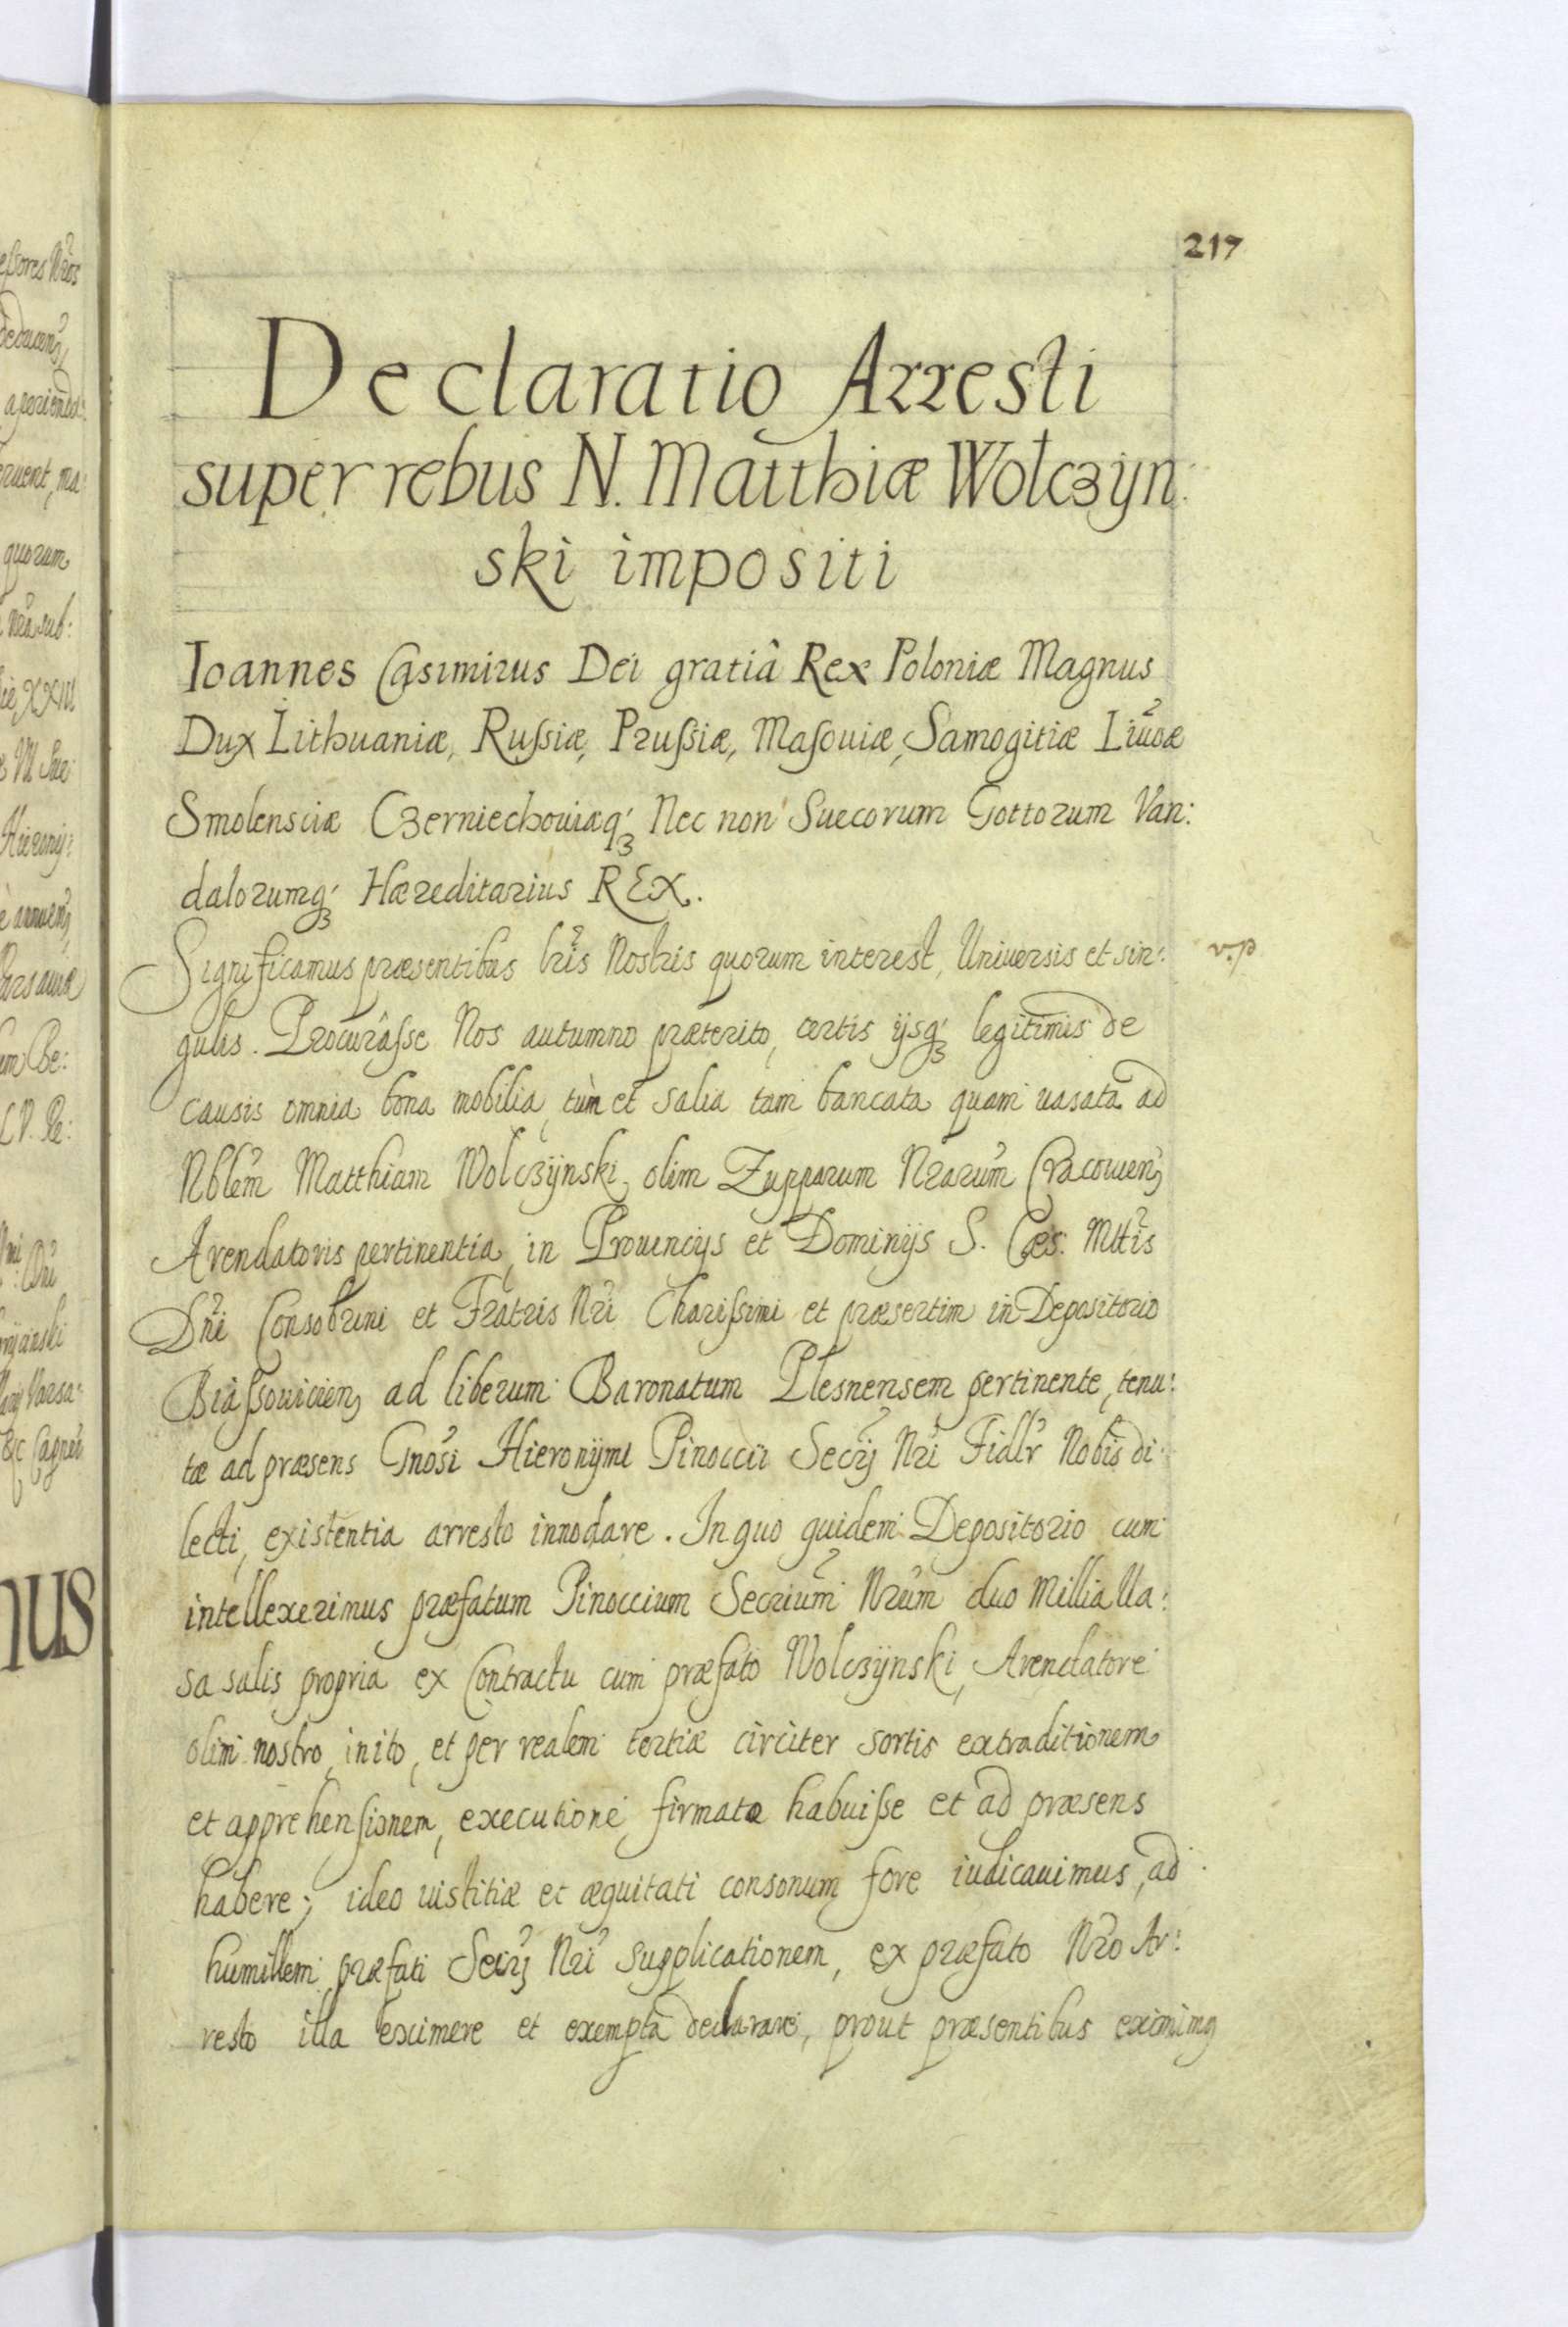 217
Declaratio Arresti
super rebus N. Matthiæ Wolczÿn:
ski impositi
Ioannes Casimirus Dei gratiâ Rex Poloniæ Magnus
Dux Lithuaniæ, Rußiæ, Prußiæ, Masouiæ, Samogitiæ Liuoæ
Smolensciæ Czerniechouiæq́ꝫ Nec non Suecorum Gottorum Van:
dalorumq́ꝫ Hæreditarius REX.
Significamus præsentibus lris̃ Nostris quorum interest, Uniuersis et sin:
v.p
gulis. Procurâsse Nos autumno præterito, certis ijsq́ꝫ legitimis de
causis omnia bona mobilia, tùm et salia tam bancata quam uasata ad
Nblem̃ Matthiam Wolczÿnski olim Zupparum Nrarum̃ Cracouien̄
Arendatoris pertinentia, in Prouincijs et Dominijs S. Cæs. Mttis̃
Dñi Consobrini et Fratris Nri Charißimi et præsertim in Depositorio
Biassouicien̄ ad liberum Baronatum Plesnensem pertinente, tenu:
tæ ad præsens Gnosĩ Hieronÿmi Pinoccii Secrij̃ Nri Fidlr̃ Nobis di:
lecti, existentia arresto innodare. In quo quidem Depositorio cum
intellexerimus præfatum Pinoccium Secrium̃ Nrum duo Millia Ua:
sa salis propria ex Contractu cum præfato Wolczÿnski, Arendatore
olim nostro, inito, et per realem tertiæ circiter sortis extraditionem
et apprehensionem, executione firmata habuiße et ad præsens
habere; ideo iustitiæ et æquitati consonum fore iudicauimus, ad
humillem præfati Secrij̃ Nri supplicationem, ex præfato Nro Ar:
resto illa eximere et exempta declarare, prout præsentibus eximimꝯ